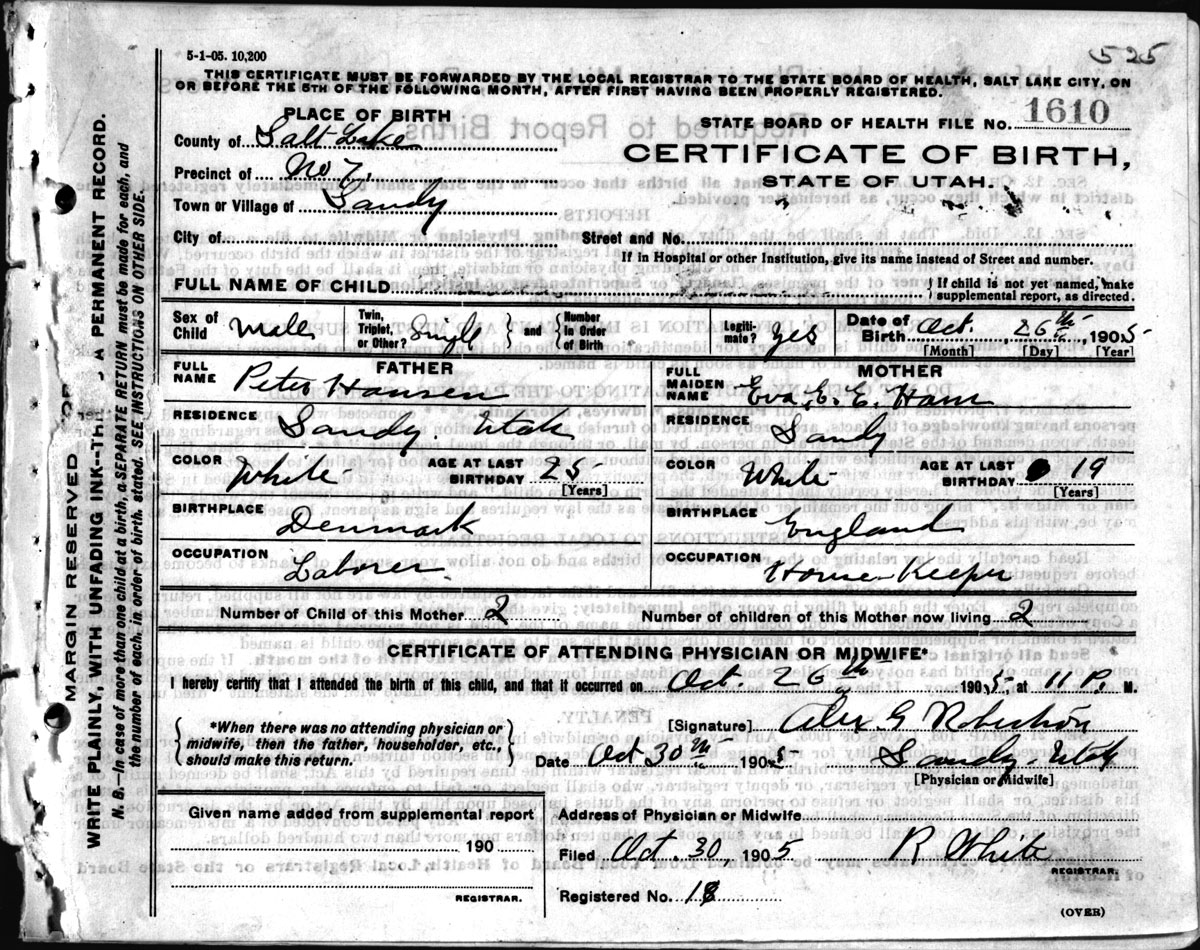 5-1-05. 10,200
525
THIS CERTIFICATE MUST BE FORWARDED BY THE LOCAL REGISTRAR TO THE STATE BOARD OF HEALTH, SALT LAKE CITY, ON
OR BEFORE THE 5TH OF THE FOLLOWING MONTH, AFTER FIRST HAVING BEEN PROPERLY REGISTERED.
PLACE OF BIRTH
County of Salt Lake
Precinct of No 7,
Town or Village of Sandy
STATE BOARD OF HEALTH FILE No. 1610
CERTIFICATE OF BIRTH,
STATE OF UTAH.
City of
Street and No.
If in Hospital or other Institution, give its name instead of Street and number.
FULL NAME OF CHILD
{ If child is not yet named, make
supplemental report, as directed.
Sex of Child Male
Twin, Triplet, or Other? Single } and { Number in Order of Birth
Legiti-mate? yes
Date of Birth Oct. 26th 1905
[Month] [Day] [Year]
FATHER
FULL NAME Peter Hansen
RESIDENCE Sandy. Utah
COLOR White AGE AT LAST BIRTHDAY 25
[Years]
BIRTHPLACE Denmark
OCCUPATION Laborer
MOTHER
FULL MAIDEN NAME Eva. E. E. Ham
RESIDENCE Sandy
COLOR White AGE AT LAST BIRTHDAY 19
[Years]
BIRTHPLACE England
OCCUPATION House-Keeper
Number of Child of this Mother 2 Number of children of this Mother now living 2
CERTIFICATE OF ATTENDING PHYSICIAN OR MIDWIFE*
I hereby certify that I attended the birth of this child, and that it occurred on Oct. 26th 1905, at 11 P. M.
{ *When there was no attending physician or
midwife, then the father, householder, etc.,
should make this return. }
[Signature] Alex G Robertson
Date Oct 30th 1905 Sandy. Utah
[Physician or Midwife]
Given name added from supplemental report
190
REGISTRAR.
Address of Physician or Midwife
Filed Oct. 30, 1905 R White
REGISTRAR.
Registered No. 18
(OVER)
MARGIN RESERVED
WRITE PLAINLY, WITH UNFADING INK--THIS A PERMANENT RECORD.
N. B.--In case of more than one child at a birth, a SEPARATE RETURN must be made for each, and
the number of each, in order of birth, stated. SEE INSTRUCTIONS ON OTHER SIDE.